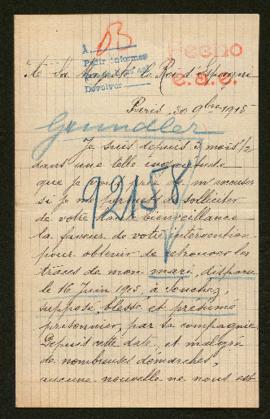 A
B
Pedir informes
Devolver
Hecho
c.a.c.
A Sa Majesté le Roi d'Espagne
Paris, 30 9bre 1915
Gundler
Je suis depuis 5 mois 1/2
dans une telle inquiétude
que je vous prie de m'excuser
si je me permets de solliciter
de votre bienveillance
la faveur de votre intervention
pour obtenir de retrouver les
traces de mon mari, disparu
le 16 Juin 1915, à Souchez,
supposé blessé et présumé
prisonnier, par sa compagnie.
Depuis cette date, et malgré
de nombreuses démarches,
aucune nouvelle ne nous est
92158